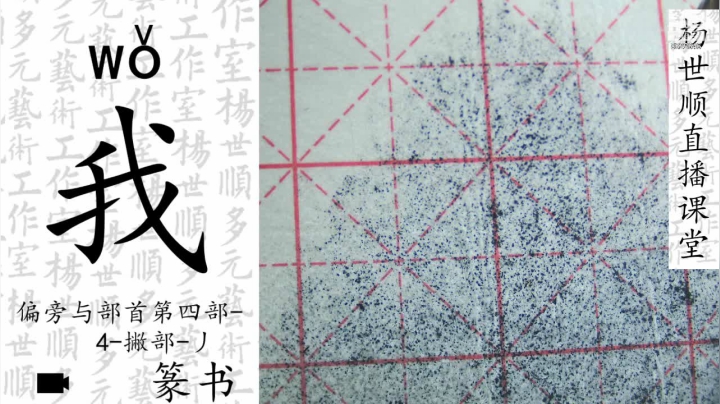 wǒ
我
偏旁与部首第四部-
4-撇部-丿
篆书
杨世顺直播课堂
楊世順多元藝術工作室